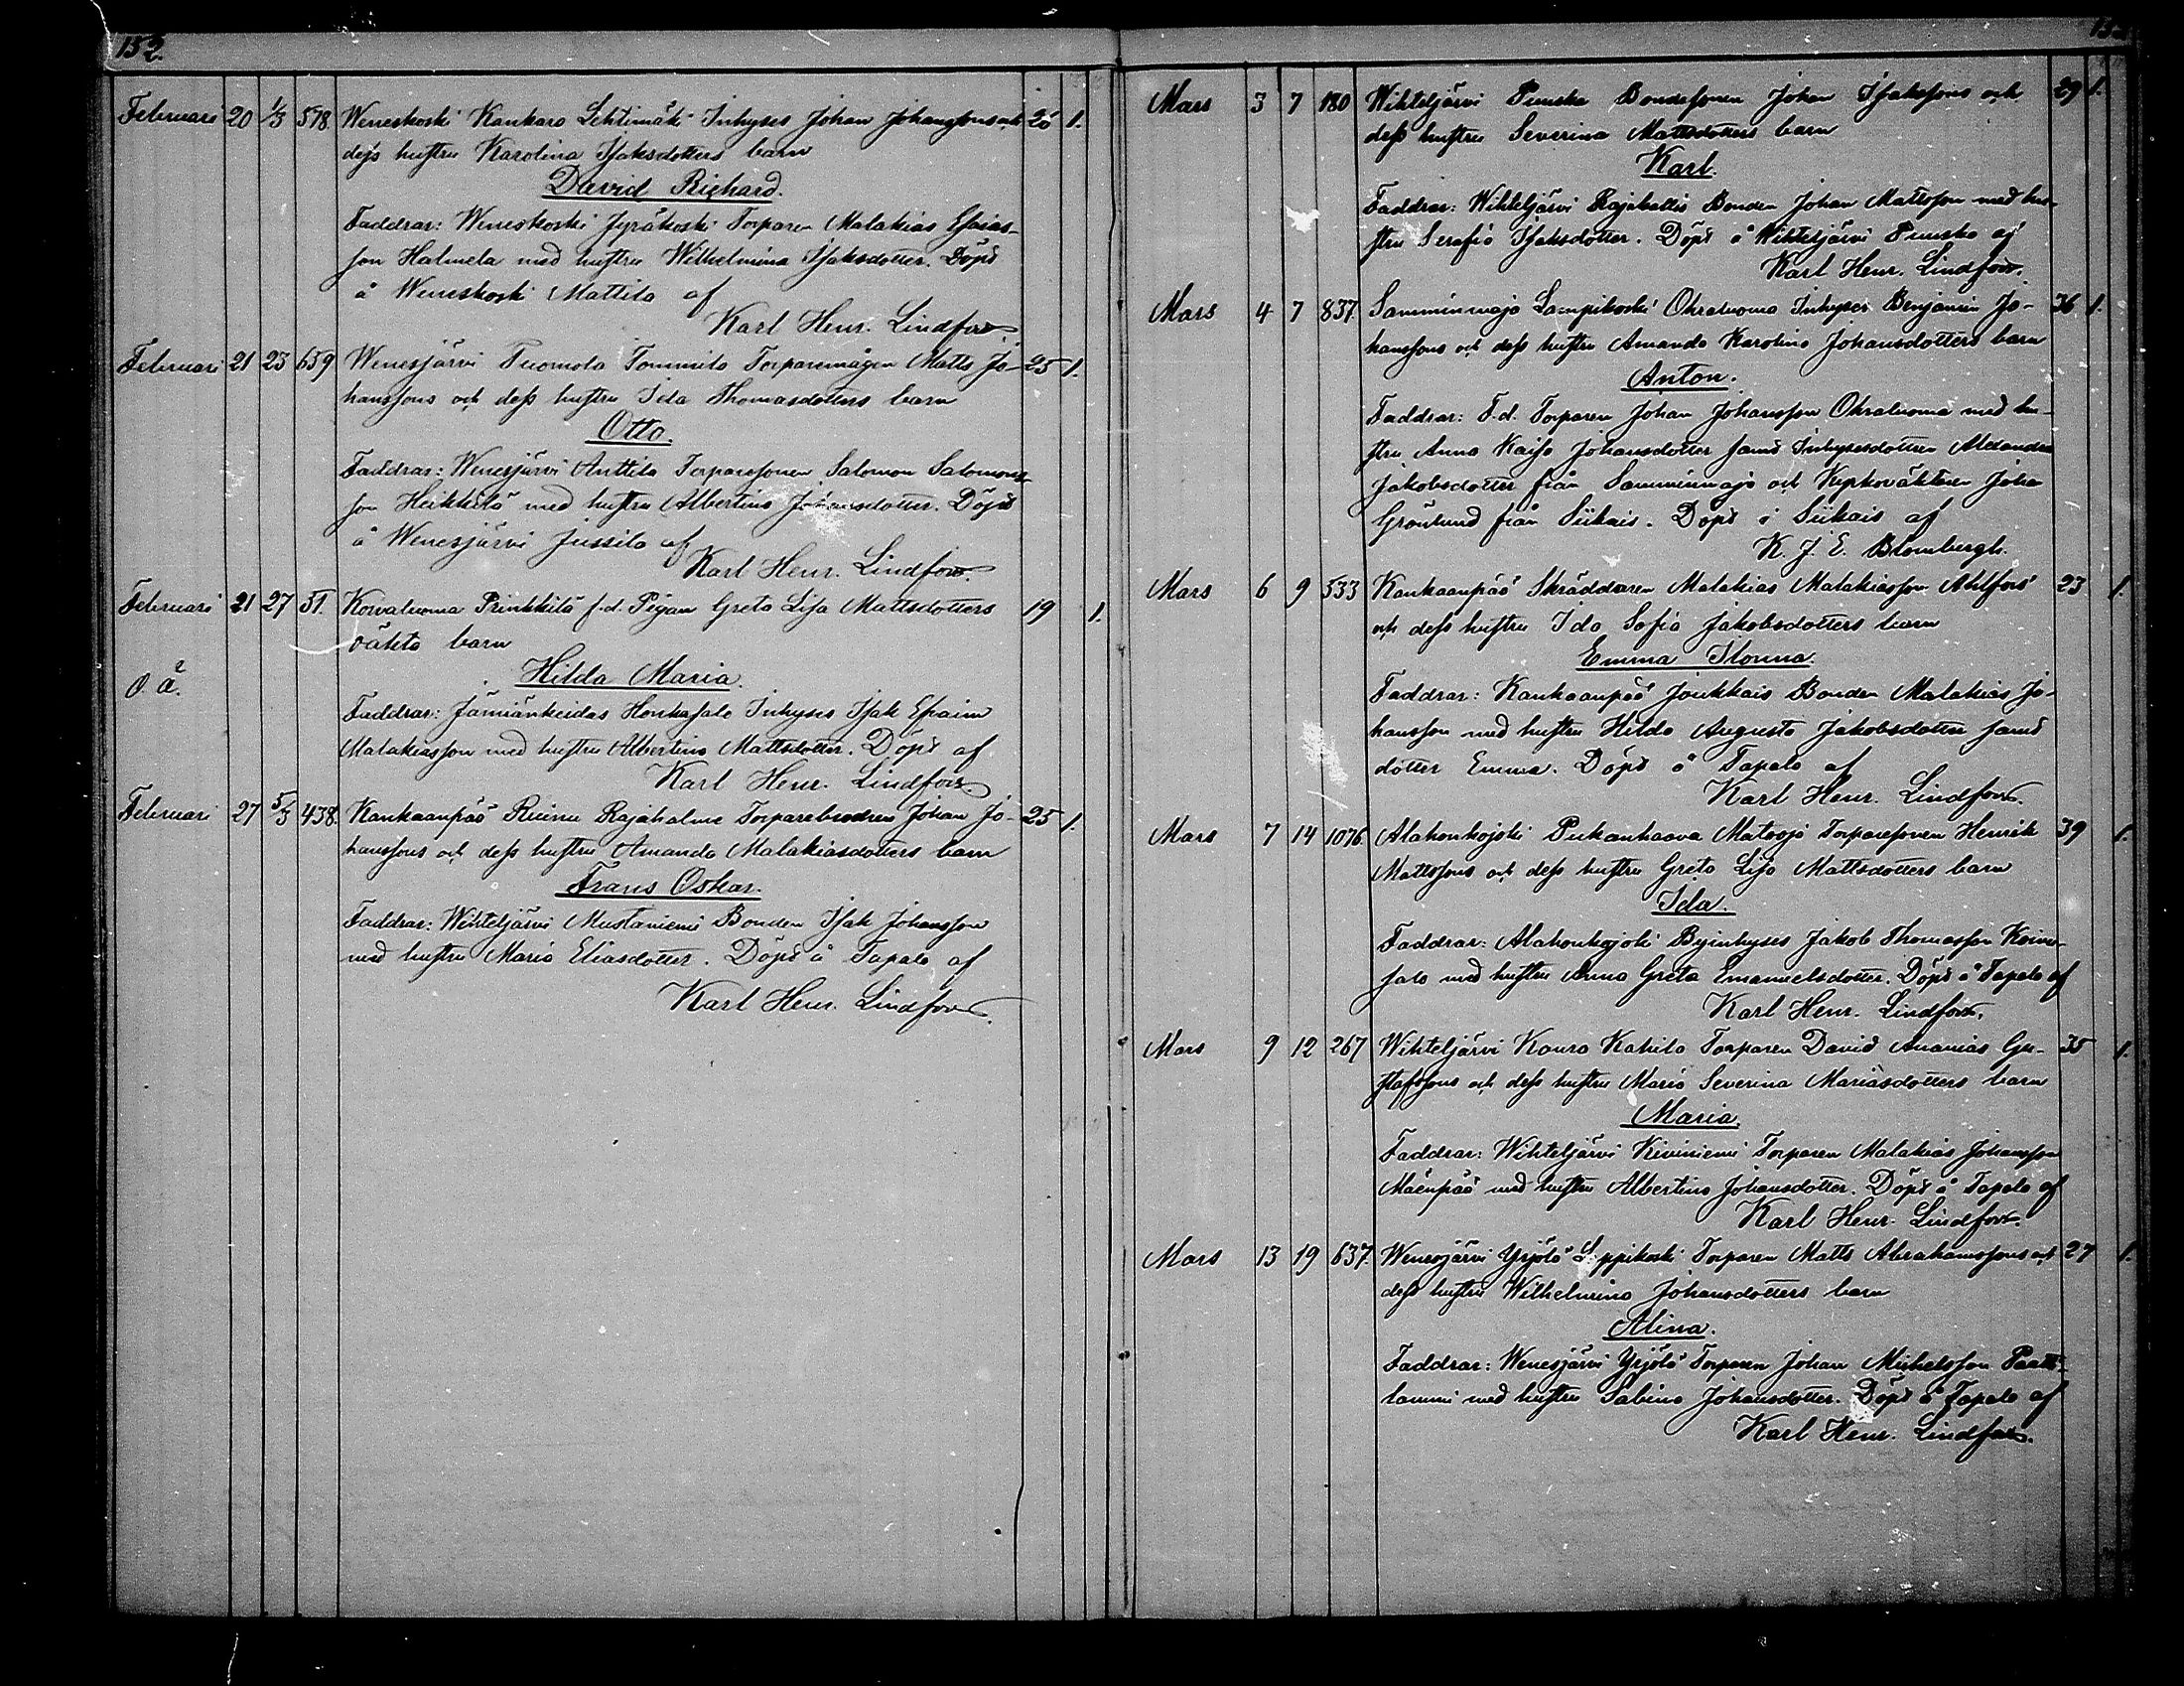 152.
Februari 20 1/3 578. Weneskoski Kankara Lehtimäki Inhyses Johan Johanssons och 25 1.
dess hustru Karolina Isaksdotters barn
David Richard.
Faddrar: Weneskoski Jyräkoski Torparen Malakias Esaias-
son Halmela med hustru Wilhelmina Isaksdotter. Döpt
å Weneskoski Mattila af
Karl Henr. Lindfors.
Februari 21 23 639 Wenesjärvi Tuomola Tommila Torparemågen Matts Jo- 25 1.
hanssons och dess hustru Ida Thomasdotters barn
Otto.
Faddrar: Wenesjärvi Anttila Torparesonen Salomon Salomons-
son Heikkilä med hustru Albertina Johansdotter. Döpt
å Wenesjärvi Jussila af
Karl Henr. Lindfors.
Februari 21 27 51. Korvaluoma Prinkkilä f.d. Pigan Greta Lisa Mattsdotters 19 1.
oäkta barn
O. ä.
Hilda Maria.
Faddrar: Jämiänkeidas Honkasalo Inhyses Isak Efraim
Malakiasson med hustru Albertina Mattsdotter. Döpt af
Karl Henr. Lindfors.
Februari 27 5/3 438. Kankaanpää Ruimu Rajahalme Torparebrodren Johan Jo- 25 1.
hanssons och dess hustru Amanda Malakiasdotters barn
Frans Oskar.
Faddrar: Wihteljärvi Mustaniemi Bonden Isak Johansson
med hustru Maria Eliasdotter. Döpt å Tapala af
Karl Henr. Lindfors.
Mars 3 7 180 Wihteljärvi Pumska Bondesonen Johan Isakssons och 29 1.
dess hustru Severina Mattsdotters barn
Karl.
Faddrar: Wihteljärvi Rajakallis Bonden Johan Mattsson med hu-
stru Serafia Isaksdotter. Döpt å Wihteljärvi Pumska af
Karl Henr. Lindfors.
Mars 4 7 837. Samminmaja Lampikoski Ohraluoma Inhyses Benjamin Jo- 36 1.
hanssons och dess hustru Amanda Karolina Johansdotters barn
Anton.
Faddrar: F.d. Torparen Johan Johansson Ohraluoma med hu-
stru Anna Kaisa Johansdotter samt Inhysesdottren Alexandra
Jakobsdotter från Samminmaja och Kyrkoväktaren Johan
Grönlund från Siikais. Döpt i Siikais af
K. J. E. Blombergh.
Mars 6 9 533 Kankaanpää Skräddaren Malakias Malakiasson Ahlfors 23 1.
och dess hustru Ida Sofia Jakobsdotters barn
Emma Ilonna.
Faddrar: Kankaanpää Joukkais Bonden Malakias Jo-
hansson med hustru Hilda Augusta Jakobsdotter samt
dotter Emma. Döpt å Tapala af
Karl Henr. Lindfors.
Mars 7 14 1076. Alahonkajoki Pukanhaava Mato-oja Torparesonen Henrik 39 1.
Mattssons och dess hustru Greta Lisa Mattsdotters barn
Ida.
Faddrar: Alahonkajoki Byinhyses Jakob Thomasson Koivu-
salo med hustru Anna Greta Emanuelsdotter. Döpt å Tapala af
Karl Henr. Lindfors.
Mars 9 12 267 Wihteljärvi Koura Kahila Torparen David Ananias Gu- 35 1.
stafssons och dess hustru Maria Severina Mariasdotters barn
Maria.
Faddrar: Wihteljärvi Kiviniemi Torparen Malakias Johansson
Mäenpää med hustru Albertina Johansdotter. Döpt å Tapala af
Karl Henr. Lindfors.
Mars 13 19 637. Wenesjärvi Yrjölä Leppikoski Torparen Matts Abrahamssons och 27 1.
dess hustru Wilhelmina Johansdotters barn
Alina.
Faddrar: Wenesjärvi Yrjölä Torparen Johan Michelsson Paatti-
lammi med hustru Sabina Johansdotter. Döpt å Tapala af
Karl Henr. Lindfors.